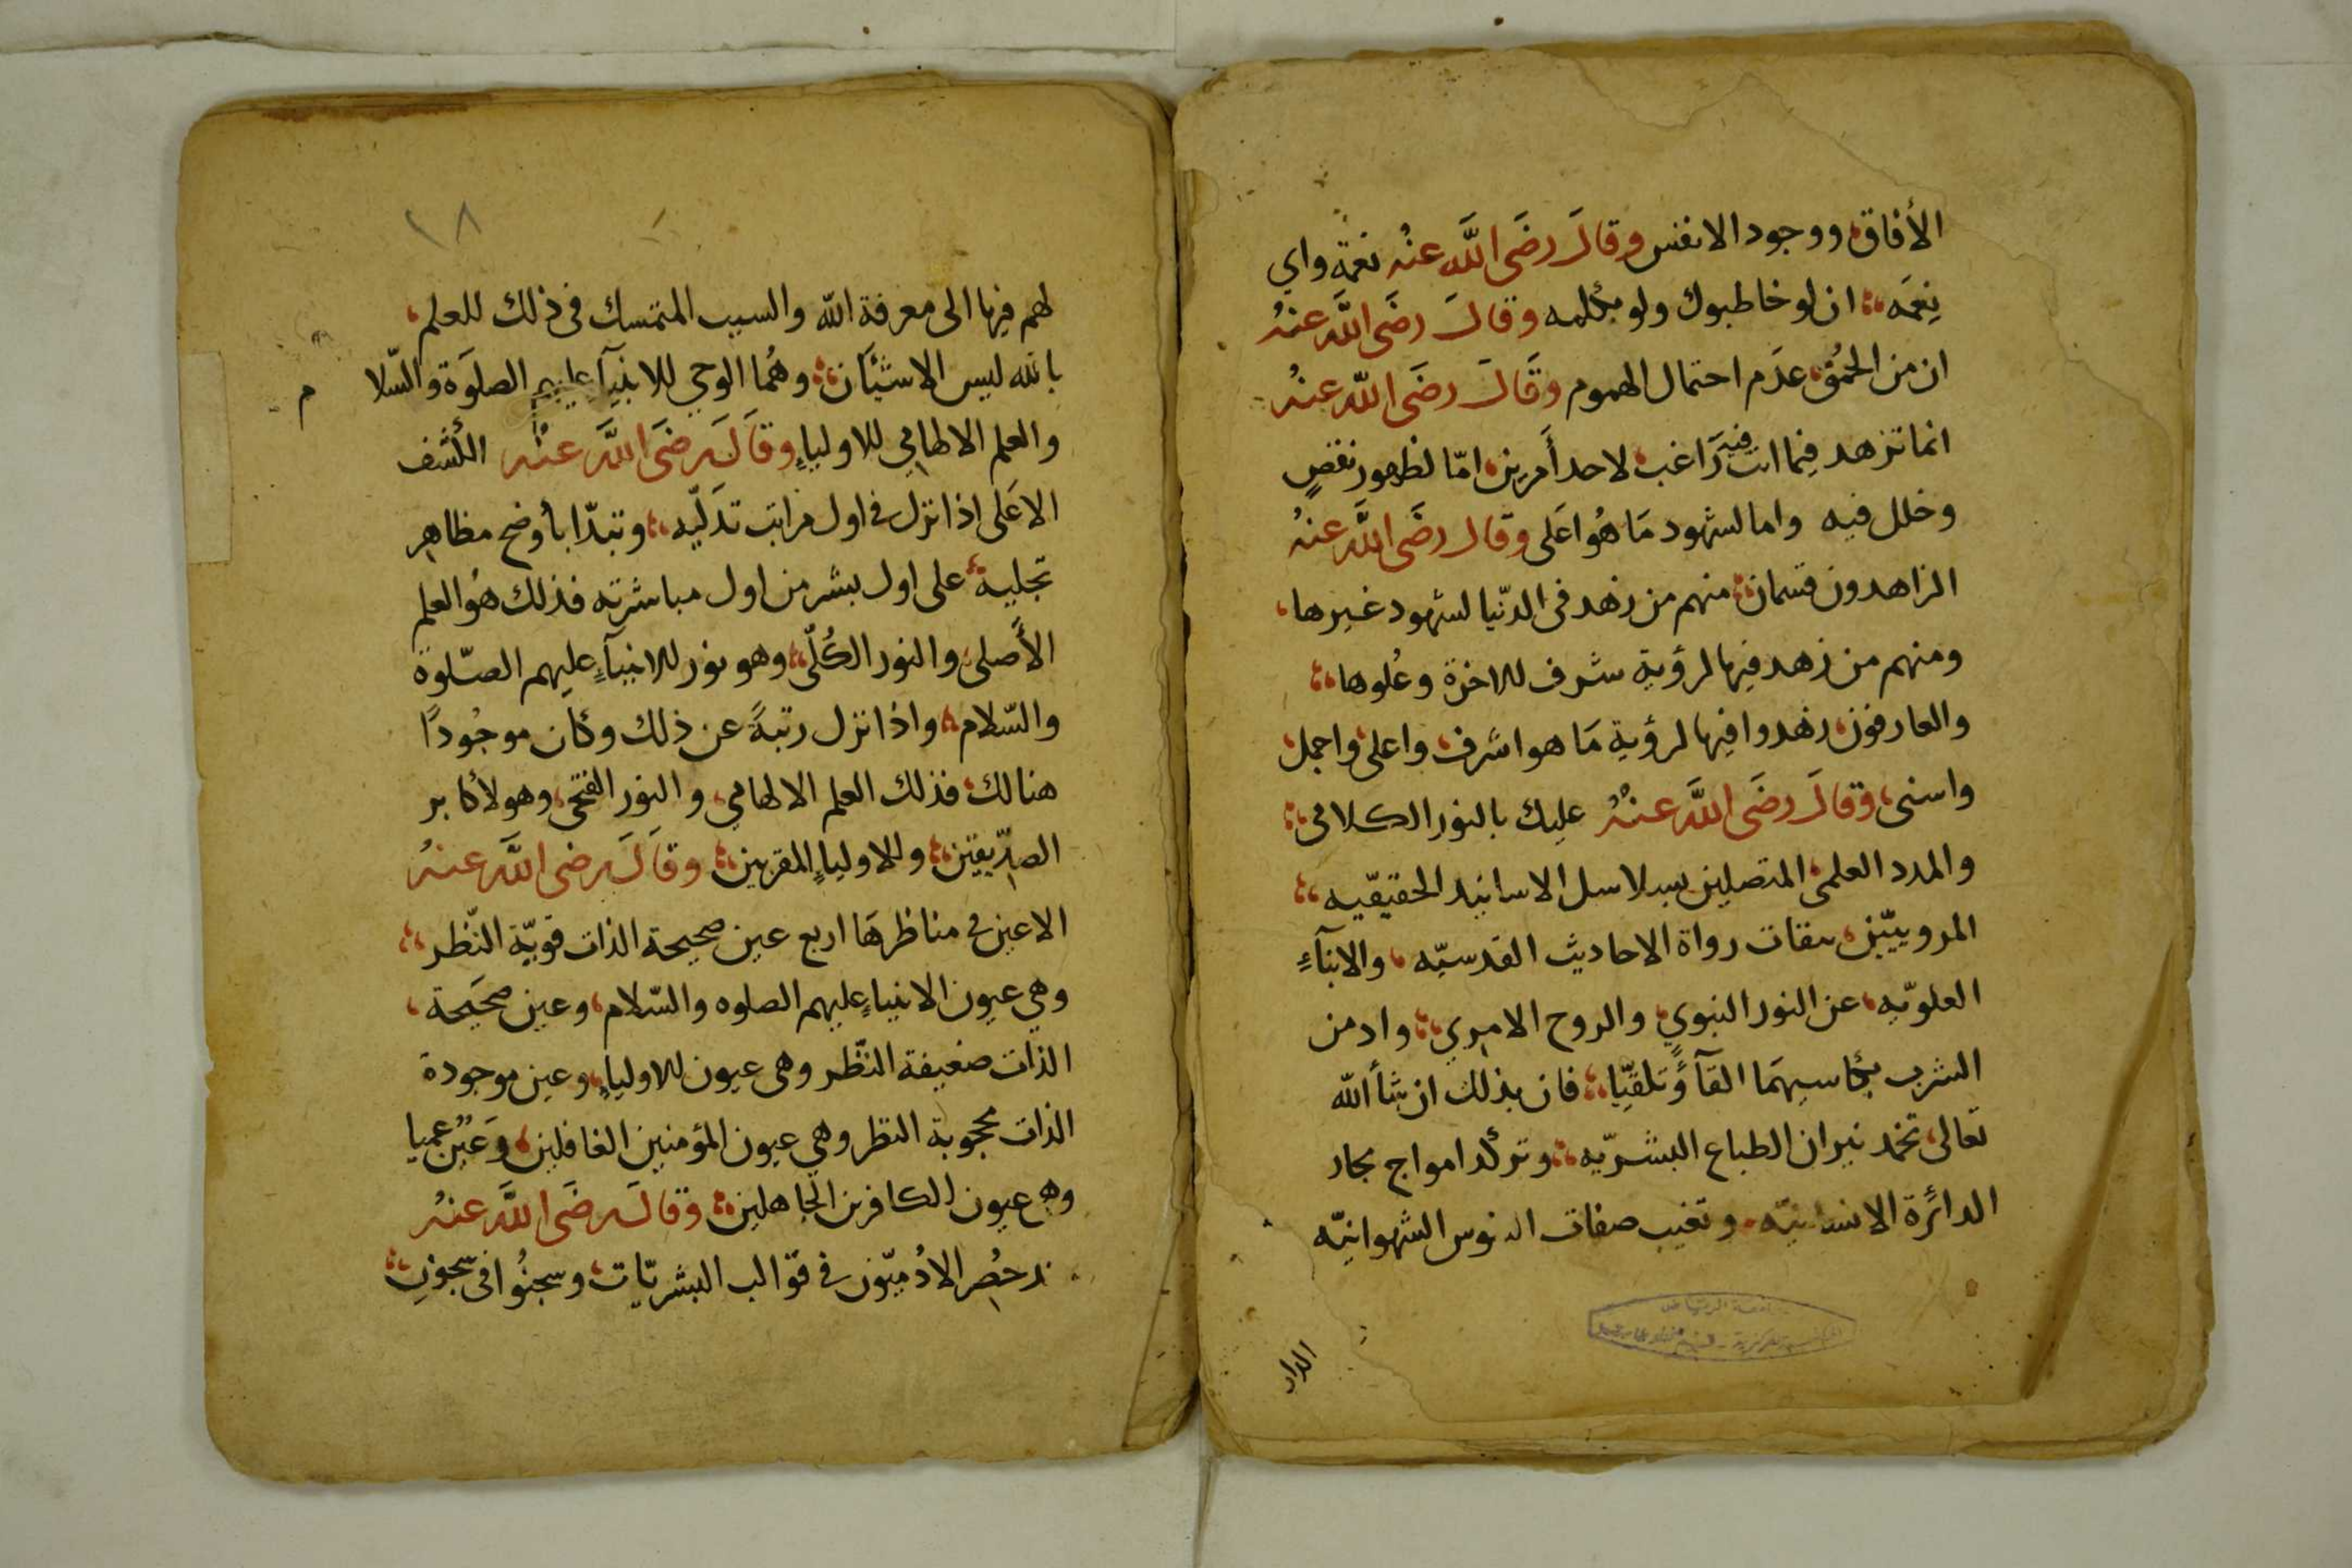 الأفاق ووجود الانفس وقال رضَى اللَّه عنْه نعمة واي
نِعمَه ان لو خاطبوك ولو بكلمه وقال رضَى اللَّه عنهُ
ان من الحُمُق عدَم احتمال الهموم وقَال رضَى اللَّه عنهُ
انما تزهد فيما انت فيه رَاغب لاحد أَمرين امّا لظهور نقصٍ
وخلل فيه واما لشهود مَا هُو اعَلى وقال رضَى اللَّه عنهُ
الزاهدون قسمان منهم من زهد فى الدّنيا لشهود غيرها
ومنهم من زهد فيها لرؤية شرف للاخرة وعُلوها
والعارفون زهدوا فيها لرؤية مَا هو اشرف واعلى واجمل
واسنى وقالَ رضَى اللَّه عنْهُ عليك بالنور الكلامى
والمدد العلمى المتصلين بسلاسل الاسانيد الحقيقيّه
المرويّين بثقات رواة الاحاديث القدسيّه والابنآءِ
العلويّه عن النور النبوي والروح الامري وادمن
الشرب بكاسيهمَا القآءً وتلقيّا فان بذلك ان شأ اللّه
تعالى تخمد نيران الطباع البشريّه وتركد امواج بحار
الدائرة الانسانيّه وتغيب صفات النفوس الشهوانيّه
الدار
١٨
لهم فيها الى معرفة اللّه والسبب المتمسك فى ذلك للعلم
باللّه ليس الا شيئَان وهُما الوحي للانبيآءِ عليهم الصلوَة والسّلا
م
والعلم الالهامي للاولياءِ وقَالَ رضَى اللَّه عنْه الكشف
الاعَلى اذا نزل فى اول مراتب تدَلّيه وتبدّا بأوضح مظاهر
تجليه على اول بشر من اول مباشرته فذلك هوُ العلم
الأَصلى والنور الكُلّى وهو نور للانبيآءِ عليهم الصّلوة
والسّلام واذا نزل رتبةً عن ذلك وكان موجُودًا
هنالك فذلك العلم الالهامي والنور الفتحى وهو لأكابر
الصدّيقين وللاولياءِ المقربين وقَالَ رضى اللَّه عنهُ
الاعين فى مناظرهَا اربع عين صحيحة الذات قويّة النّظر
وهي عيون الانبياءِ عليهم الصلوه والسّلام وعين صحيَحة
الذات ضعيفة النّظر وهى عيون للاولياءِ وعين موجودة
الذات محجوبة النظر وهي عيون المؤمنين الغافلين وَعَيْن عميا
وهى عيون الكافرين الجاهلين وقالَ رضَى اللَّه عنهُ
حُصِر الادُميّون فى قوالب البشريّات وسجنُوا فى سجونِ